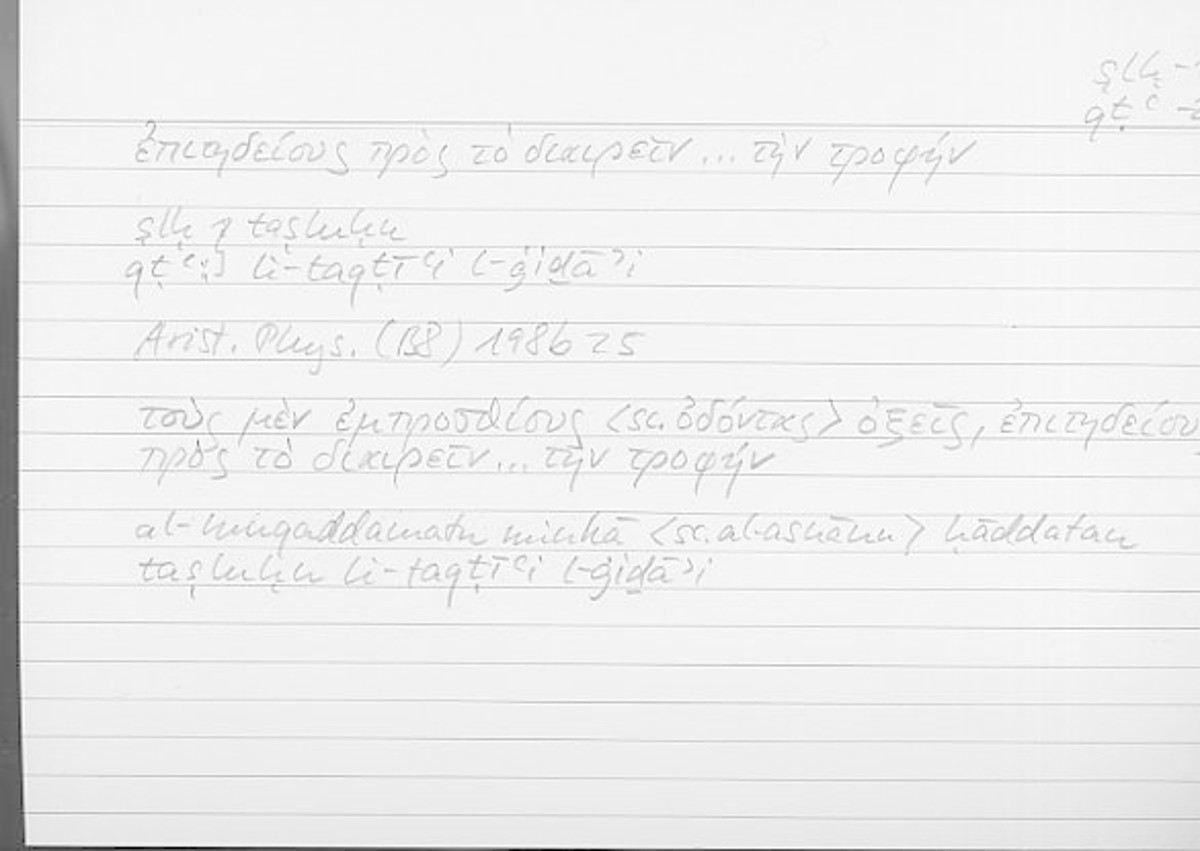 ṣlḥ -
qṭʿ -
ἐπιτηδείους πρὸς τὸ διαιρεῖν ... τὴν τροφήν
ṣlḥ taṣluḥu
qṭʿ li-taqṭīʿi l-ġiḏāʾi
Arist. Phys. (B8) 198b25
τοὺς μὲν ἐμπροσθίους <sc. ὀδόντας> ὀξεῖς, ἐπιτηδείου
πρὸς τὸ διαιρεῖν ... τὴν τροφήν
al-muqaddamatu minhā <sc. al-asnānu> ḥāddatan
taṣluḥu li-taqṭīʿi l-ġiḏāʾi